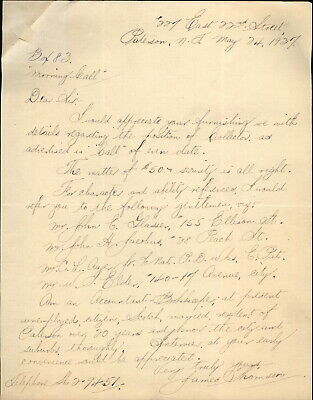 "227 East 22nd Street,"
Paterson, N.J. May 24, 1927.
Box 83.
"Morning Call"
Dear Sir-
I would appreciate your furnishing me with
details regarding the position of Collector, as
advertised in "Call" of even date.
The matter of $50.= security is all right.
For character and ability references, I would
refer you to the following gentlemen, viz:
Mr. John E. 155 Ellison St.
Mr. John A. 38 Peach St.
Mr. E. L. P.D. E. Pat.
Mr. J. Elder, "140-17th Avenue, City.
Am an Accountant & Bookkeeper, at present
unemployed, citizen, Scotch, married, resident of
Paterson over 20 years and know the city and
suburbs thoroughly. Interview at your early
convenience would be appreciated.
Very truly yours,
James Thomson
Telephone She. 2-9451.